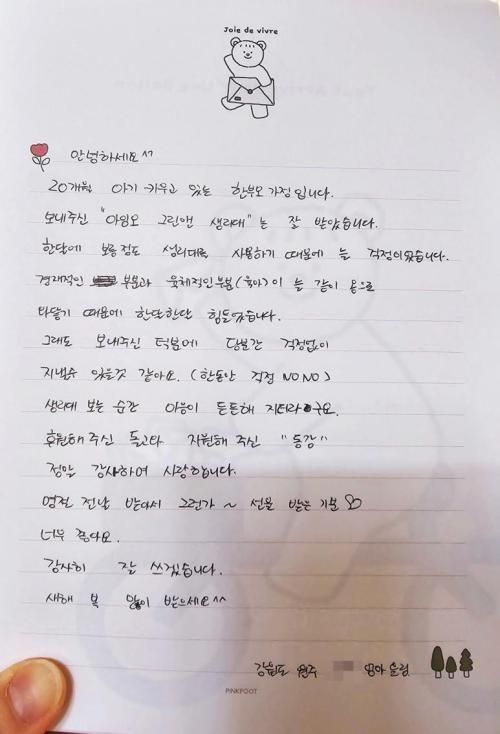 Joie de vivre
안녕하세요 ^^
20개월 아기 키우고 있는 한부모 가정입니다.
보내주신 "아임오 그린앤 생리대"는 잘 받았습니다.
한달에 보름 정도 생리대를 사용하기 때문에 늘 걱정이었습니다.
경제적인 부분과 육체적인 부분(육아)이 늘 같이 몸으로
와닿기 때문에 한달한달 힘들었습니다.
그래도 보내주신 덕분에 당분간 걱정없이
지낼수 있을것 같아요. (한동안 걱정 NO NO)
생리대 보는 순간 마음이 든든해 지더라구요.
후원해주신 돌고타 지원해 주신 "동감"
정말 감사하며 사랑합니다.
명절 전날 받아서 그런가 ~ 선물 받은 기분 ♡
너무 좋아요.
감사히 잘 쓰겠습니다.
새해 복 많이 받으세요^^
강원도 원주 엄마 올림
PINKFOOT